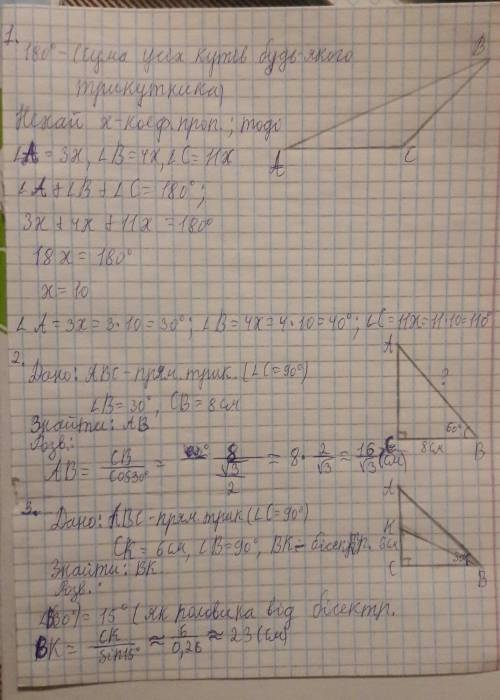 1.
180° - (сума усіх кутів будь-якого
трикутника)
Нехай x - коеф. проп.; тоді
∠A = 3x, ∠B = 4x, ∠C = 11x
∠A + ∠B + ∠C = 180°;
3x + 4x + 11x = 180°
18x = 180°
x = 10
∠A = 3x = 3·10 = 30°; ∠B = 4x = 4·10 = 40°; ∠C = 11x = 11·10 = 110
A
B
C
2.
Дано: ABC - прям. трик. (∠C = 90°)
∠B = 30°, CB = 8 см
Знайти: AB
Розв.:
AB = CB/cos30° = 8/(√3/2) = 8 · 2/√3 = 16/√3 (см)
A
?
60°
C
8 см
B
3.
Дано: ABC - прям. трик (∠C = 90°)
CK = 6 см, ∠B = 90°, BK - бісектр.
Знайти: BK
Розв.:
15° (як половина від бісектр.
BK = CK/sin15° ≈ 6/0,26 ≈ 23 (см)
A
K
6 см
C
B